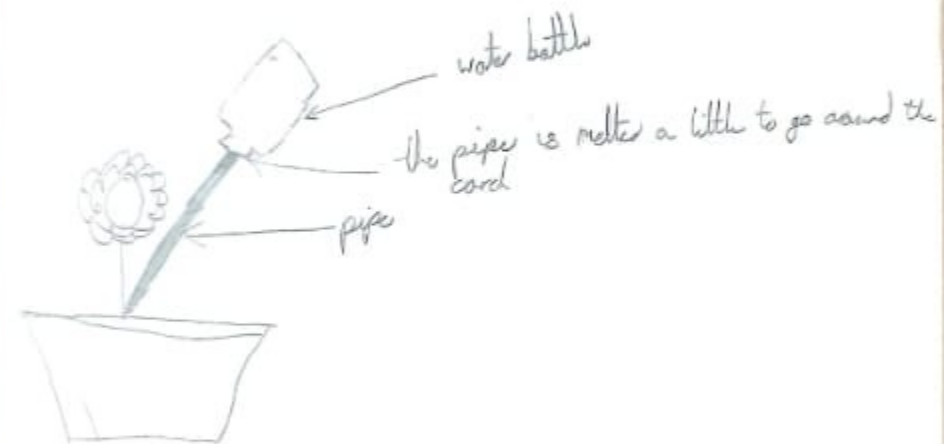 water bottle
the pipe is melted a little to go around the
card
pipe